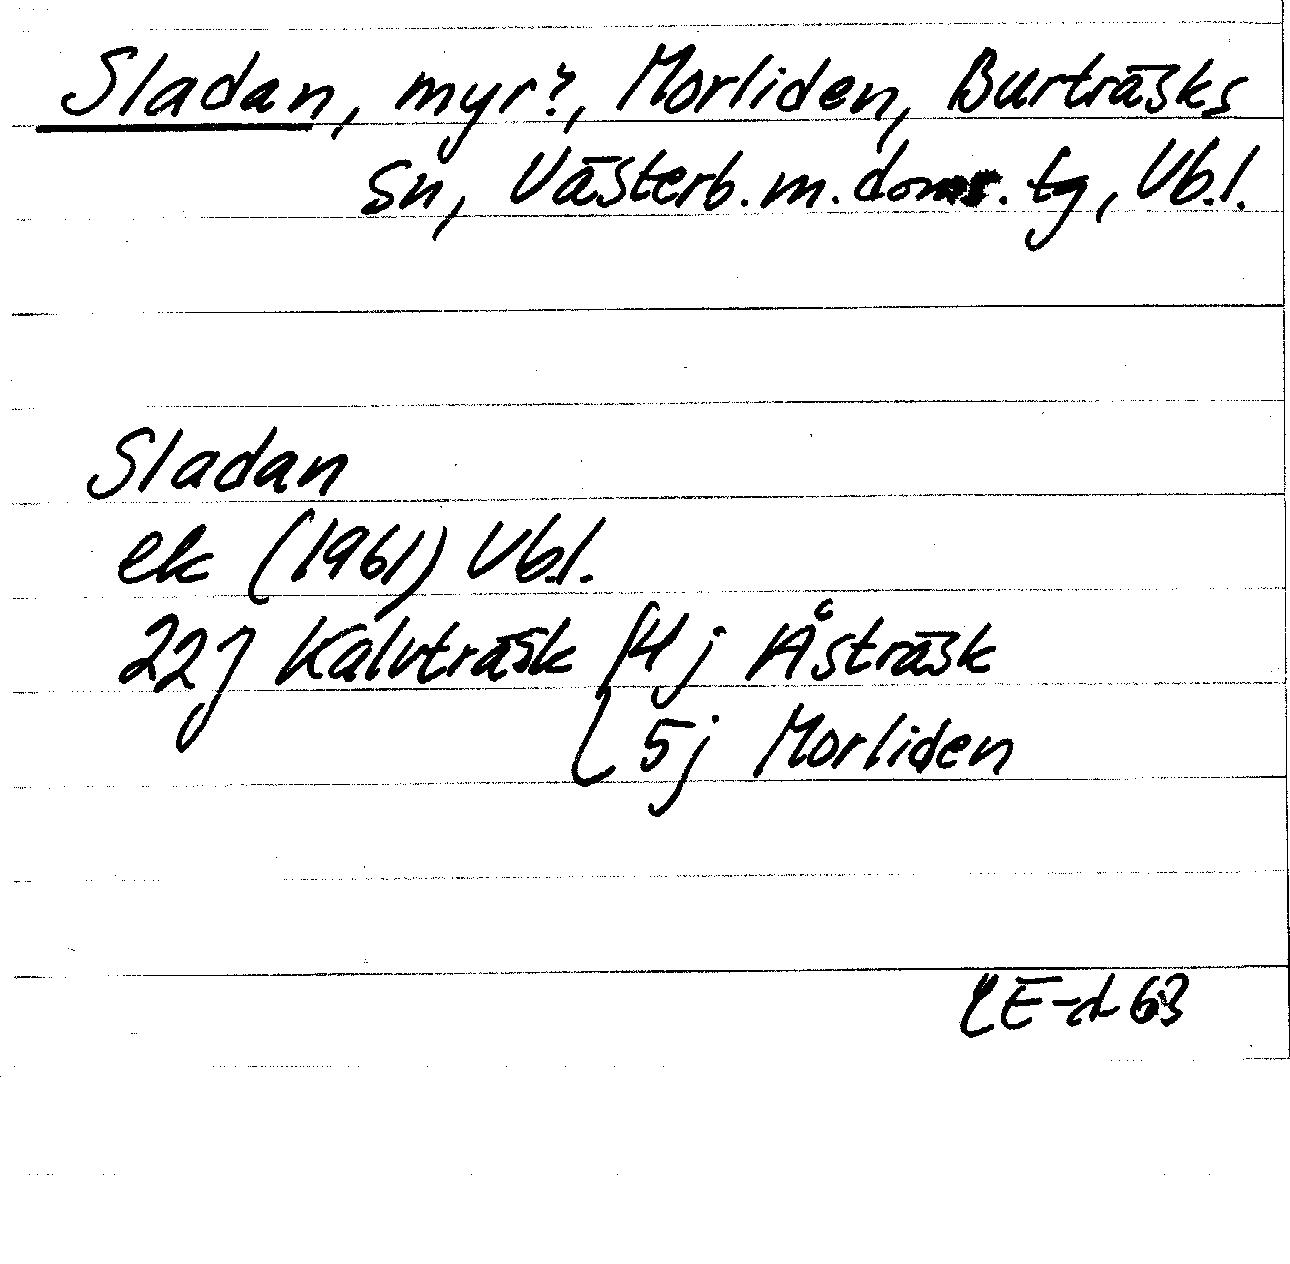 Sladan, myr?, Morliden, Burträsks
sn, Västerb. m. doms. tg, Vb. l.
Sladan
ek (1961) Vb. l.
22J Kalvträsk 4j Åsträsk
5j Morliden
63